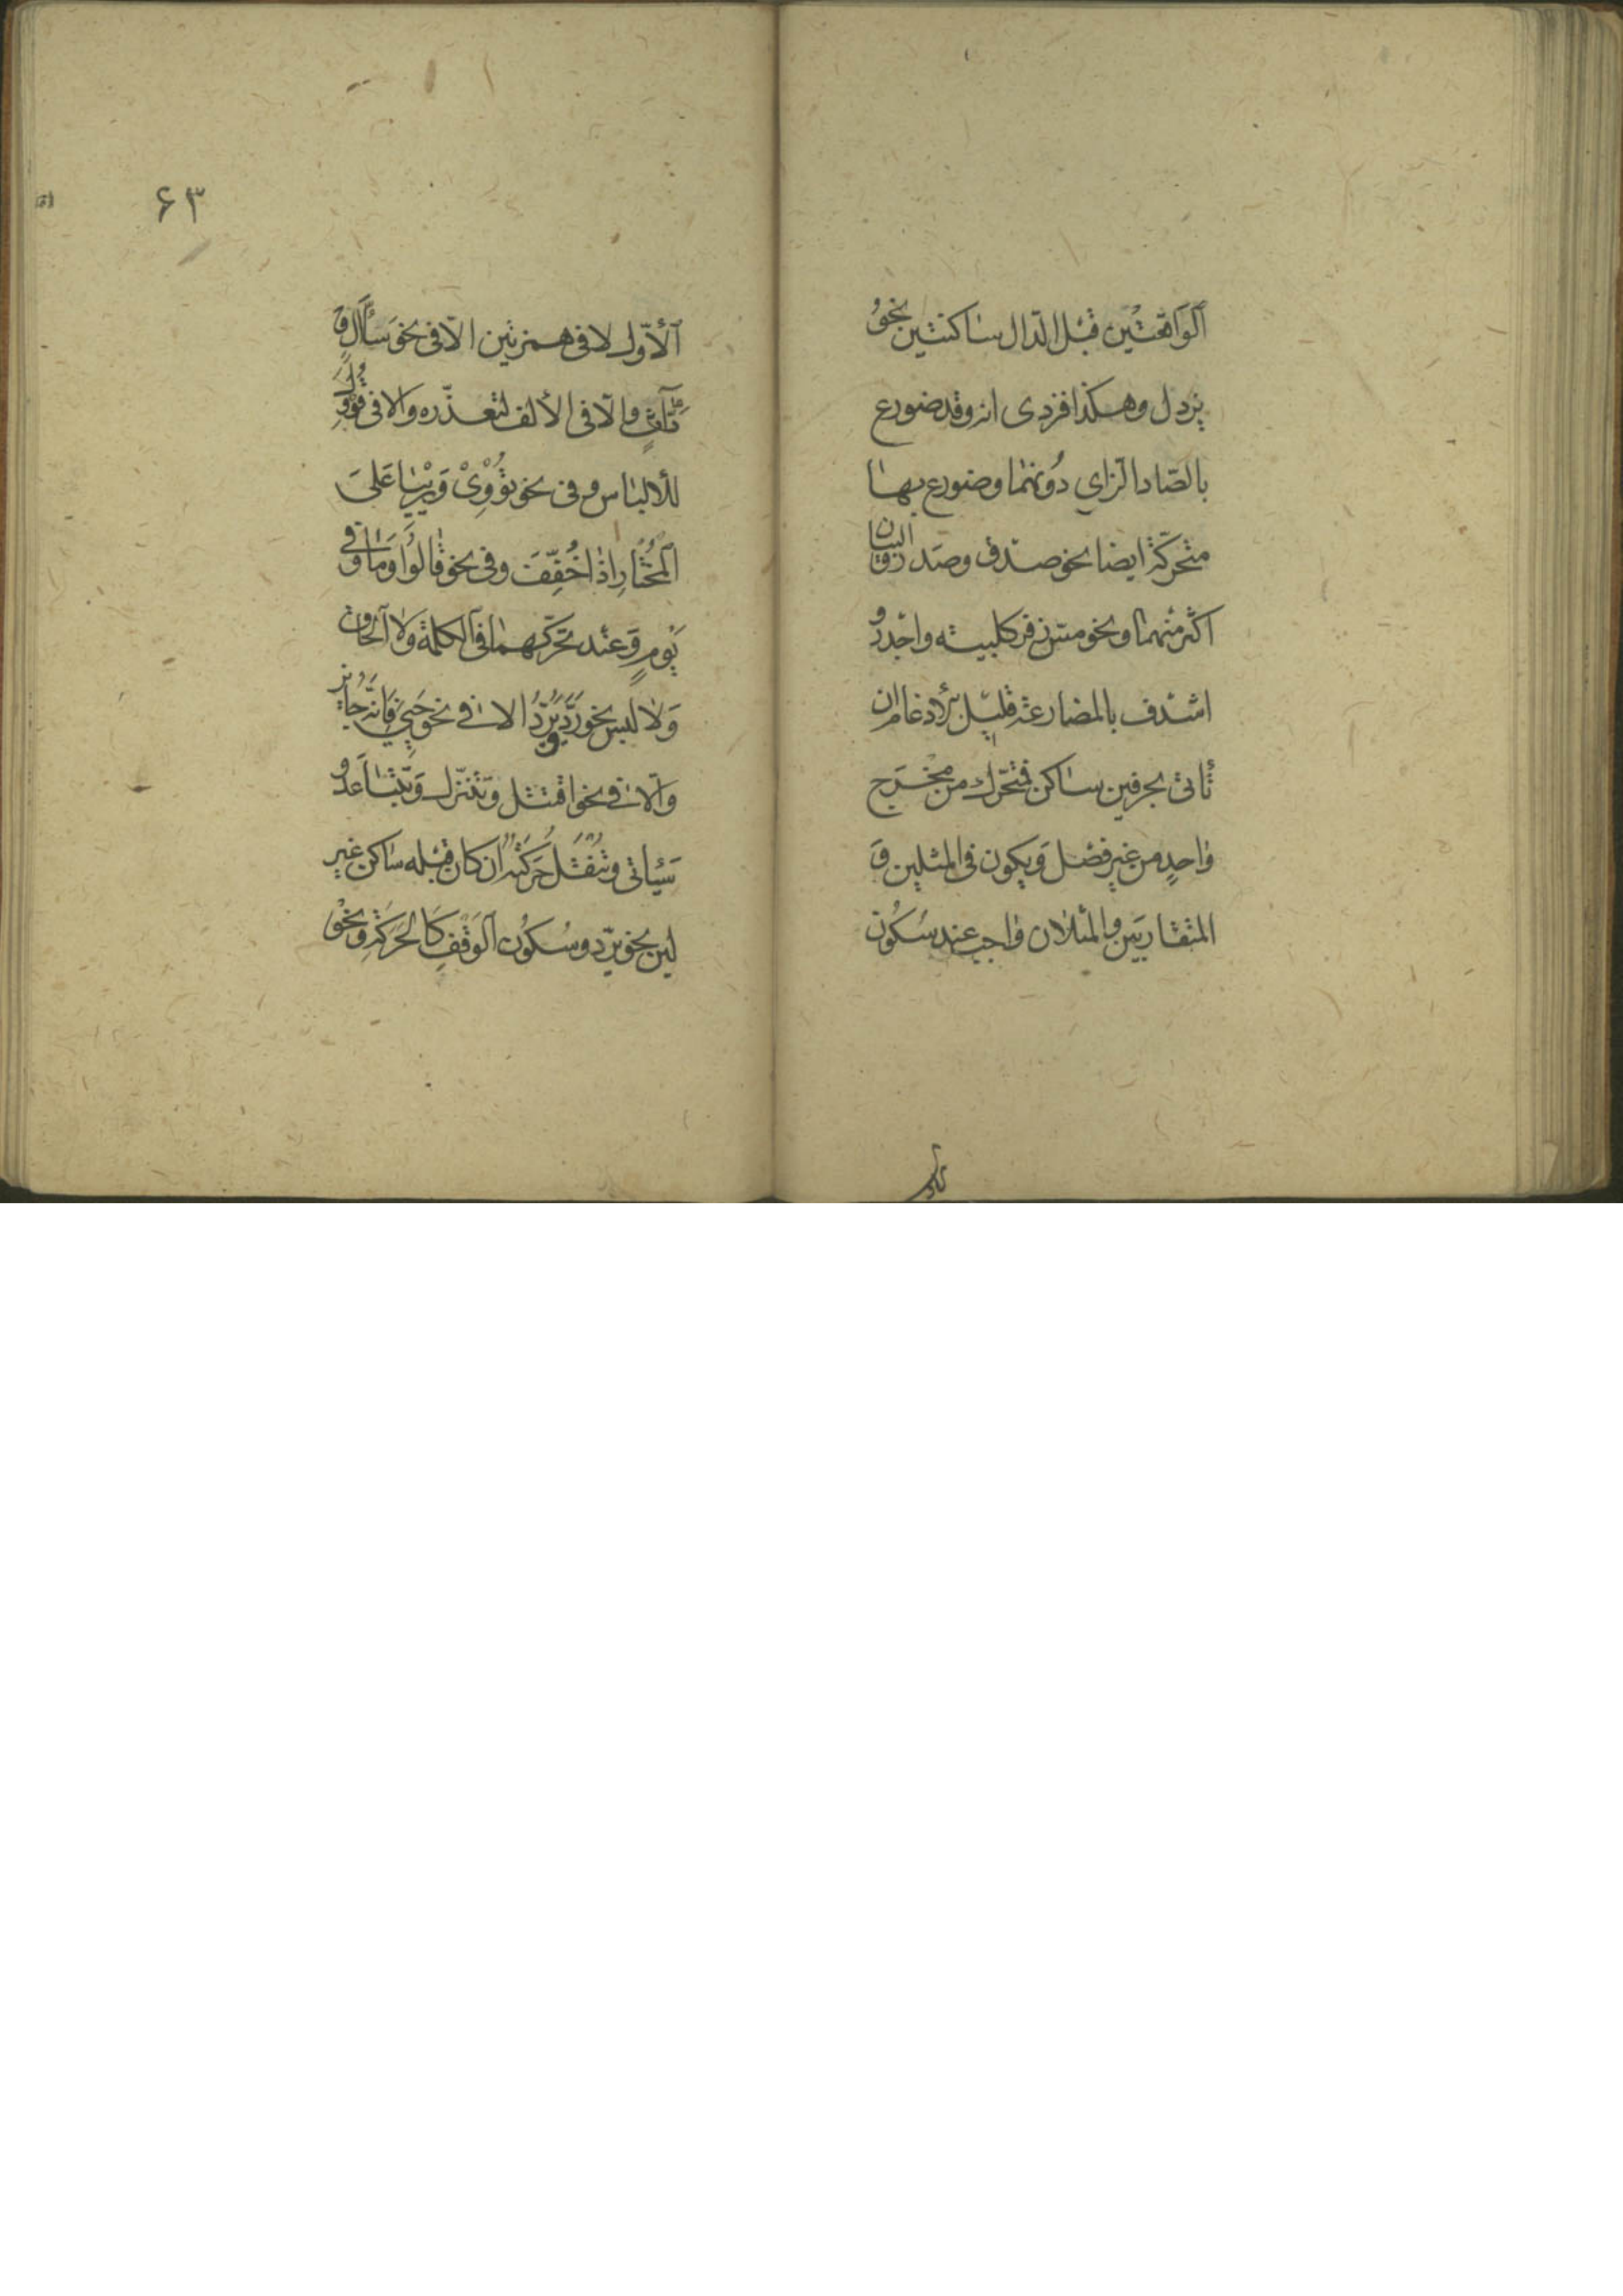 الواقعتين قبل الدال ساكنتين نحو
يزدل وهكذا فزدى انه وقد ضورع
بالصاد الزاي دونهما وضورع بها
متحركة ايضا نحو صدق وصدر والبيان
اكثر منهما ونحو مس زقر كلبية واجدر و
اشدق بالمضارعة قليل الادغام ان
تأتى بحرفين ساكن فمتحرك من مخرج
واحد من غير فصل ويكون فى المثلين و
المتقاربين والمثلان واجب عند سكون
۶۳
الأول لا فى همزتين الا فى نحو سأال و
دأاث والا فى الألف لتعذره والا فى قوول
للألباس وفى نحو تووى ورييا على
المختار اذا خففت وفى نحو قالوا وما وفى
يوم وعند تحركهما فى الكلمة ولا الحاق
ولا لبس نحو رد يرد الا فى نحو حيي فانه جايز
والا فى نحو اقتتل وتتنزل وتتباعد و
سيأتى وتنقل حركته ان كان قبله ساكن غير
لين نحو يرد وسكون الوقف كالحركة ونحو